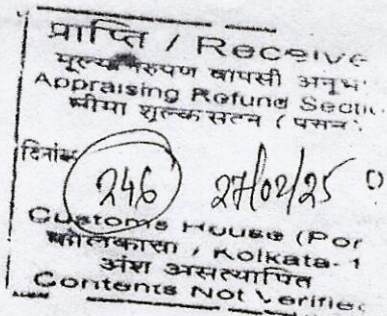 प्राप्ति / Receive
मूल्य निरुपण वापसी अनुभ
Appraising Refund Secti
सीमा शुल्क सदन ( पत्तन
दिनांक
246 27/02/25
Customs House (Por
कोलकाता / Kolkata-1
अंश असत्यापित
Contents Not Verifie